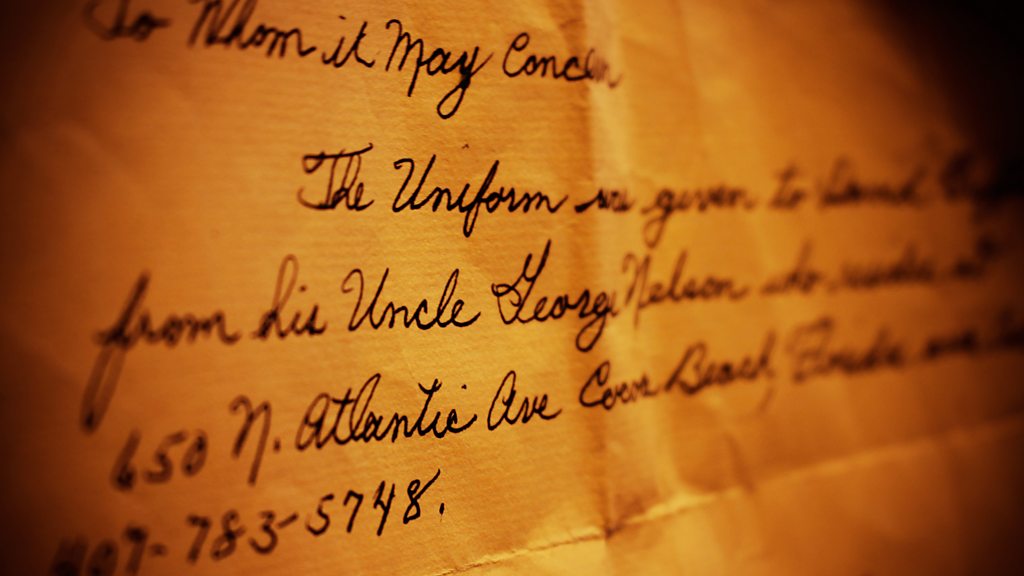 To Whom it May Concern
The Uniform are given to
from his Uncle George Nelson who resides at
650 N. Atlantic Ave Cocoa Beach, Florida
407-783-5748.